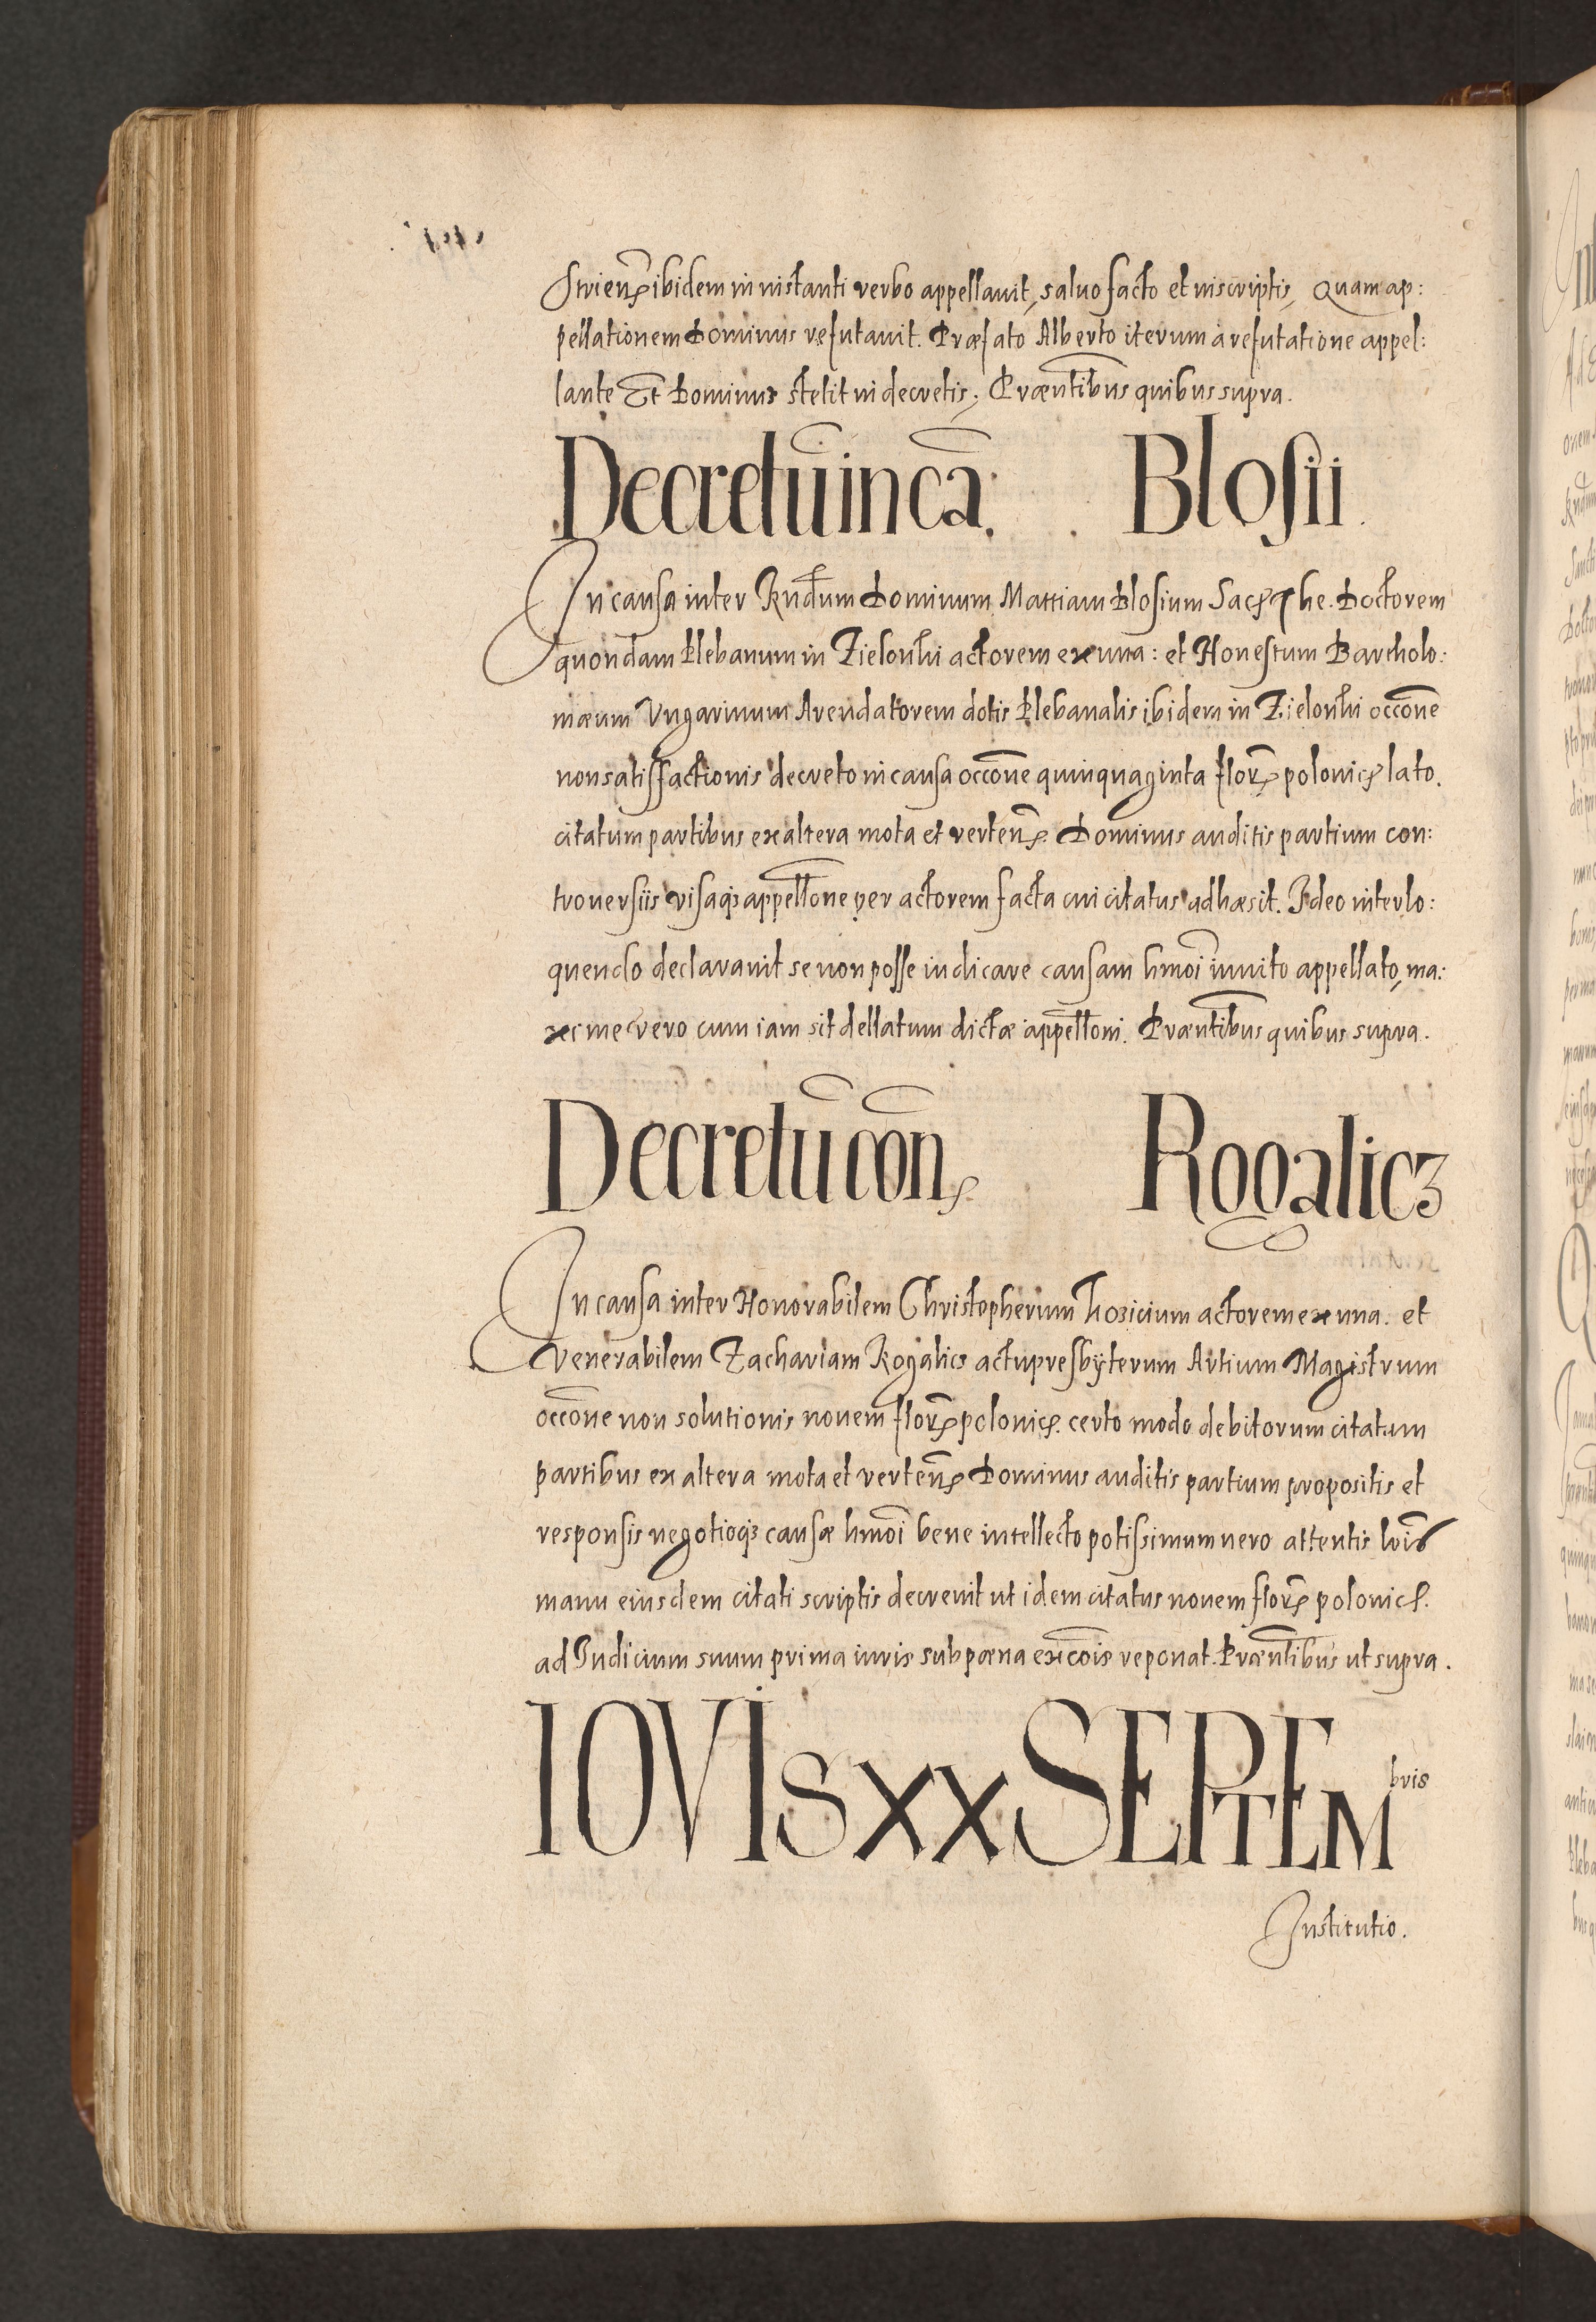 Striens ibidem in instanti verbo appellauit, saluo facto et in scriptis, Quam ap:
pellationem Dominus refutauit. Præfato Alberto iterum à refutatione appel:
lante Et Dominus stetit in decretis; Præntibus quibus supra.
Decretū in cā. Blosii.
In causa inter Rndum Dominum Mattiam Blosium Sac. The. Doctorem
quondam Plebanum in Zielonki actorem ex una: et Honestum Bartholo:
mæum Vngarinum Arendatorem dotis Plebanalis ibidem in Zielonki occōne
non satisfactionis decreto in causa occōne quinquaginta flor. polonic. lato.
citatum partibus ex altera mota et verten. Dominus auditis partium con:
trouersiis visaq3 appellōne per actorem facta cui citatus adhæsit. Ideo interlo:
quendo declarauit se non posse iudicare causam hmōi inuito appellato, ma:
xime vero cum iam sit dellatum dictæ appellōni. Præntibus quibus supra.
Decretū con. Rogalicz
In causa inter Honorabilem Christopherum actorem ex una. et
Venerabilem Zachariam Rogalicz actu presbyterum Artium Magistrum
occōne non solutionis nouem flor. polonic. certo modo debitorum citatum
partibus ex altera mota et verten. Dominus auditis partium propositis et
responsis negotioq3 causæ hmōi bene intellecto potissimum uero attentis lrīs
manu eiusdem citati scriptis decreuit ut idem citatus nouem flor. polonic.
ad Iudicium suum prima iuris sub pœna excōis reponat. Præntibus ut supra.
IOVIS XX SEPTEMbris
Institutio.